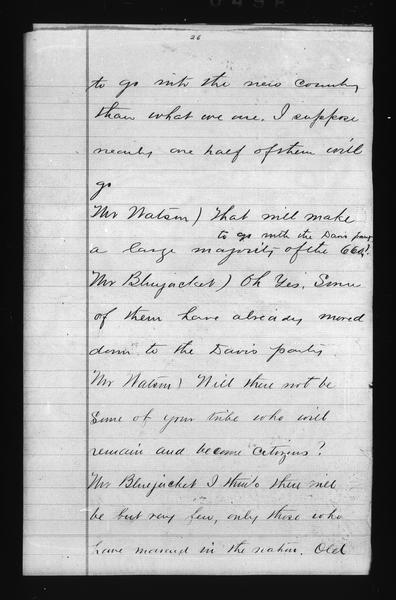 26
to go into the new country
than what we are. I suppose
nearly one half of them will
go
Mr Watson) That will make
to go with the Davis party
a large majority of the 660?
Mr Bluejacket) Oh Yes. Some
of them have already moved
down to the Davis party.
Mr Watson) Will there not be
some of your tribe who will
remain and become citizens?
Mr Bluejacket I think there will
be but very few, only those who
have married in the nation. Old